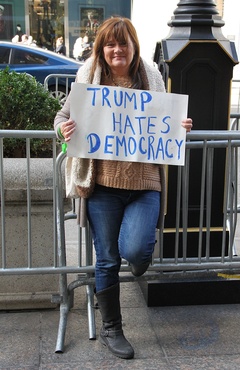 TRUMP
HATES
DEMOCRACY